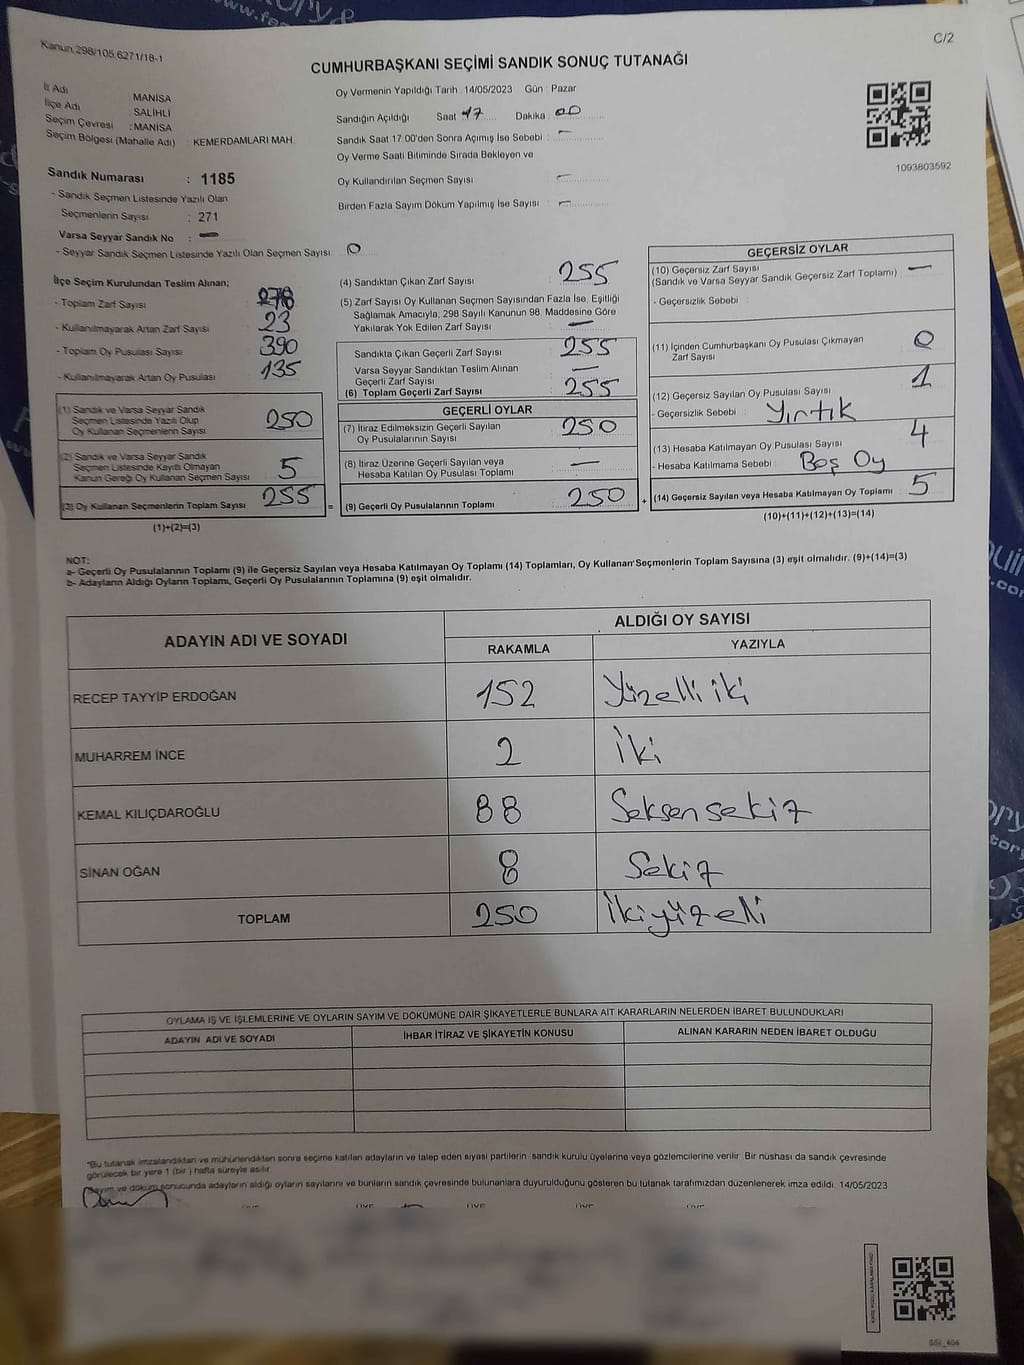 Kanun;298/105,6271/18-1
C/2
CUMHURBAŞKANI SEÇİMİ SANDIK SONUÇ TUTANAĞI
İl Adı : MANİSA
İlçe Adı : SALİHLİ
Seçim Çevresi : MANİSA
Seçim Bölgesi (Mahalle Adı) : KEMERDAMLARI MAH.
Oy Vermenin Yapıldığı Tarih :14/05/2023 Gün : Pazar
Sandığın Açıldığı Saat 17 Dakika 00
Sandık Saat 17:00'den Sonra Açımış İse Sebebi : -
Oy Verme Saati Bitiminde Sırada Bekleyen ve
Oy Kullandırılan Seçmen Sayısı : -
Birden Fazla Sayım Döküm Yapılmış İse Sayısı : -
1093803592
Sandık Numarası : 1185
- Sandık Seçmen Listesinde Yazılı Olan
Seçmenlerin Sayısı : 271
Varsa Seyyar Sandık No : -
- Seyyar Sandık Seçmen Listesinde Yazılı Olan Seçmen Sayısı: 0
İlçe Seçim Kurulundan Teslim Alınan;
- Toplam Zarf Sayısı 278
- Kullanılmayarak Artan Zarf Sayısı 23
- Toplam Oy Pusulası Sayısı 390
- Kullanılmayarak Artan Oy Pusulası 135
(1) Sandık ve Varsa Seyyar Sandık
Seçmen Listesinde Yazılı Olup
Oy Kullanan Seçmenlerin Sayısı 250
(2) Sandık ve Varsa Seyyar Sandık
Seçmen Listesinde Kayıtlı Olmayan
Kanun Gereği Oy Kullanan Seçmen Sayısı 5
(3) Oy Kullanan Seçmenlerin Toplam Sayısı 255
(1)+(2)=(3)
(4) Sandıktan Çıkan Zarf Sayısı 255
(5) Zarf Sayısı Oy Kullanan Seçmen Sayısından Fazla İse, Eşitliği
Sağlamak Amacıyla; 298 Sayılı Kanunun 98. Maddesine Göre
Yakılarak Yok Edilen Zarf Sayısı -
Sandıkta Çıkan Geçerli Zarf Sayısı 255
Varsa Seyyar Sandıktan Teslim Alınan
Geçerli Zarf Sayısı -
(6) Toplam Geçerli Zarf Sayısı 255
GEÇERLİ OYLAR
(7) İtiraz Edilmeksizin Geçerli Sayılan
Oy Pusulalarının Sayısı 250
(8) İtiraz Üzerine Geçerli Sayılan veya
Hesaba Katılan Oy Pusulası Toplamı -
= (9) Geçerli Oy Pusulalarının Toplamı 250 +
GEÇERSİZ OYLAR
(10) Geçersiz Zarf Sayısı
(Sandık ve Varsa Seyyar Sandık Geçersiz Zarf Toplamı) -
- Geçersizlik Sebebi :
(11) İçinden Cumhurbaşkanı Oy Pusulası Çıkmayan
Zarf Sayısı 0
(12) Geçersiz Sayılan Oy Pusulası Sayısı 1
- Geçersizlik Sebebi : Yırtık
(13) Hesaba Katılmayan Oy Pusulası Sayısı 4
- Hesaba Katılmama Sebebi : Boş Oy
(14) Geçersiz Sayılan veya Hesaba Katılmayan Oy Toplamı 5
(10)+(11)+(12)+(13)=(14)
NOT:
a- Geçerli Oy Pusulalarının Toplamı (9) ile Geçersiz Sayılan veya Hesaba Katılmayan Oy Toplamı (14) Toplamları, Oy Kullanan Seçmenlerin Toplam Sayısına (3) eşit olmalıdır. (9)+(14)=(3)
b- Adayların Aldığı Oyların Toplamı, Geçerli Oy Pusulalarının Toplamına (9) eşit olmalıdır.
ADAYIN ADI VE SOYADI
ALDIĞI OY SAYISI
RAKAMLA YAZIYLA
RECEP TAYYİP ERDOĞAN 152 Yüzelli iki
MUHARREM İNCE 2 İki
KEMAL KILIÇDAROĞLU 88 Seksen sekiz
SİNAN OĞAN 8 Sekiz
TOPLAM 250 İkiyüzelli
OYLAMA İŞ VE İŞLEMLERİNE VE OYLARIN SAYIM VE DÖKÜMÜNE DAİR ŞİKAYETLERLE BUNLARA AİT KARARLARIN NELERDEN İBARET BULUNDUKLARI
ADAYIN ADI VE SOYADI İHBAR İTİRAZ VE ŞİKAYETİN KONUSU ALINAN KARARIN NEDEN İBARET OLDUĞU
*Bu tutanak imzalandıktan ve mühürlendikten sonra seçime katılan adayların ve talep eden siyasi partilerin sandık kurulu üyelerine veya gözlemcilerine verilir. Bir nüshası da sandık çevresinde
görülecek bir yere 1 (bir ) hafta süreyle asılır.
Sayım ve döküm sonucunda adayların aldığı oyların sayılarını ve bunların sandık çevresinde bulunanlara duyurulduğunu gösteren bu tutanak tarafımızdan düzenlenerek imza edildi. 14/05/2023